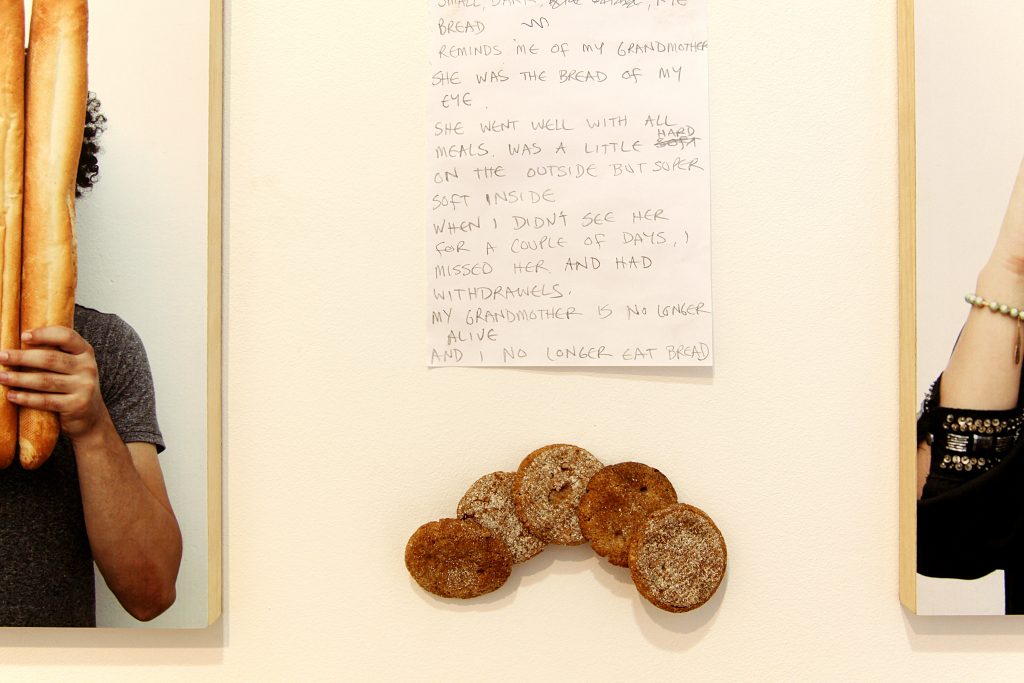 SMALL, DARK, RYE
BREAD
REMINDS ME OF MY GRANDMOTHER
SHE WAS THE BREAD OF MY
EYE.
SHE WENT WELL WITH ALL
MEALS. WAS A LITTLE SOFT HARD
ON THE OUTSIDE BUT SUPER
SOFT INSIDE
WHEN I DIDN'T SEE HER
FOR A COUPLE OF DAYS, I
MISSED HER AND HAD
WITHDRAWELS.
MY GRANDMOTHER IS NO LONGER
ALIVE
AND I NO LONGER EAT BREAD